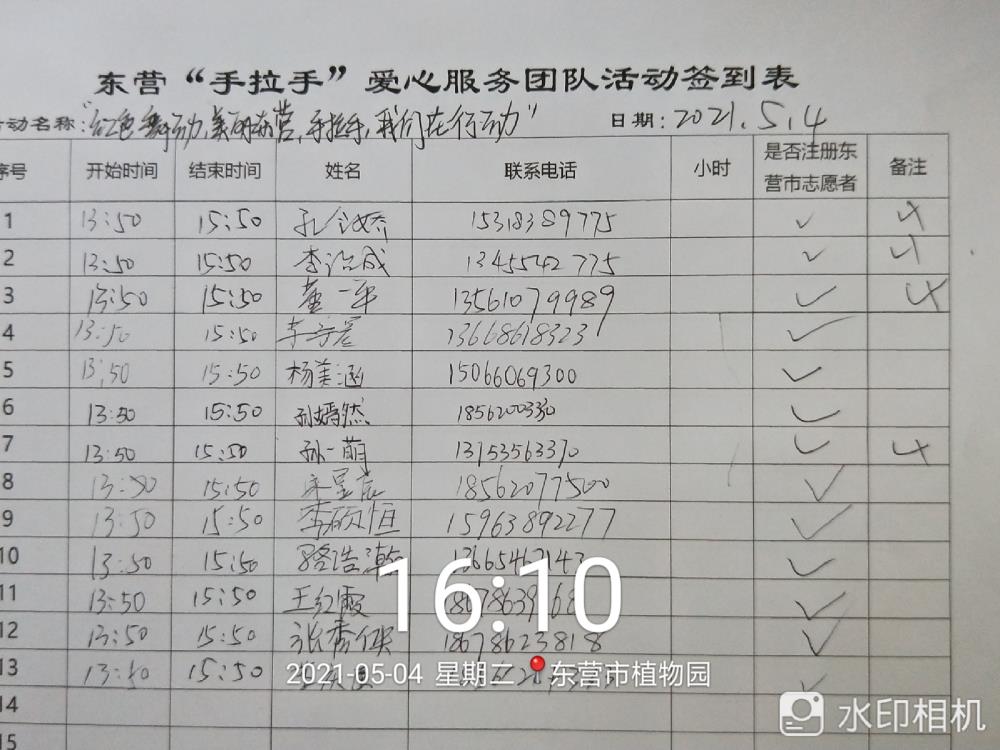 东营“手拉手”爱心服务团队活动签到表
动名称:“红色舞动,美丽东营,手拉手,我们在行动” 日期:2021.5.4
序号 开始时间 结束时间 姓名 联系电话 小时 是否注册东营市志愿者 备注
1 13:50 15:50 孔令娇 15318389775 ✓ 4
2 13:50 15:50 李治成 1345542775 ✓ 4
3 13:50 15:50 董一平 13561079989 ✓ 4
4 13:50 15:50 13668618323 ✓
5 13:50 15:50 杨美涵 15066069300 ✓
6 13:50 15:50 孙嫣然 1856200330 ✓
7 13:50 15:50 孙一萌 13953563370 ✓ 4
8 13:50 15:50 18562077500 ✓
9 13:50 15:50 李硕恒 15963892277 ✓
10 13:50 15:50 路浩瀚 ✓
11 13:50 15:50 王红霞 ✓
12 13:50 15:50 张秀侠 18678623818 ✓
13 13:50 15:50 ✓
14
15
16:10
2021-05-04 星期二 东营市植物园
水印相机